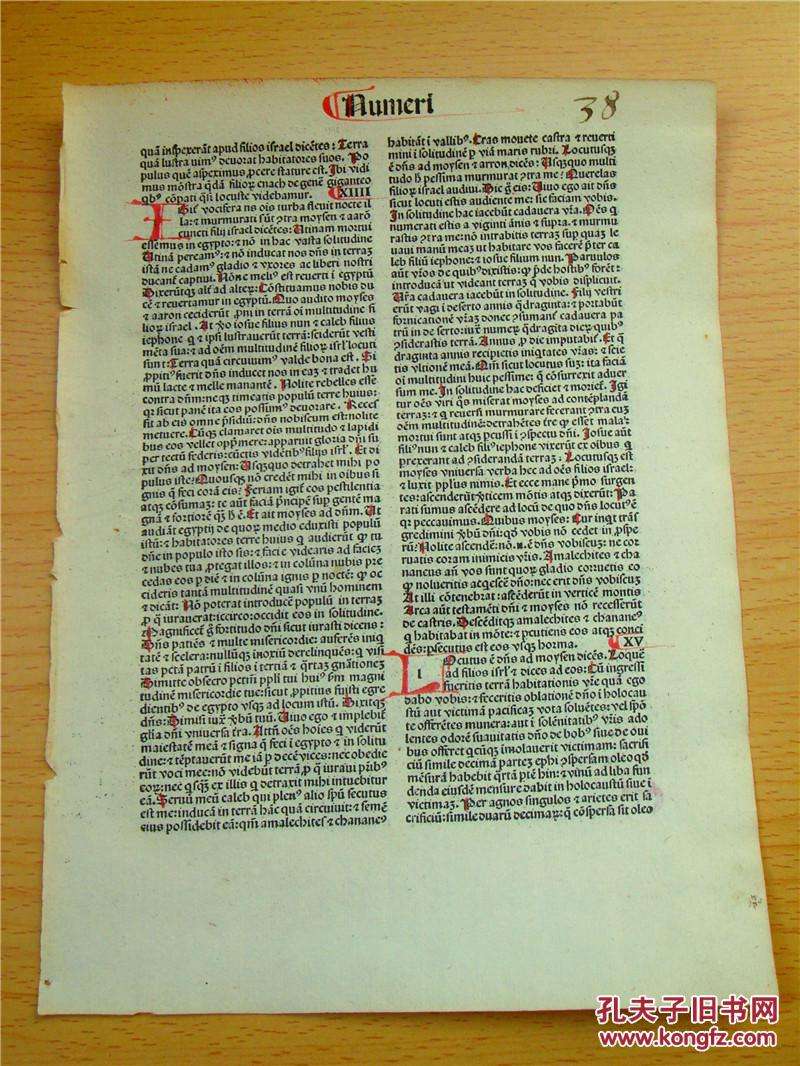 Numeri
38
quā inspexerāt apud filios israel dicētes: Terra
quā lustrauim⁹ deuorat habitatores suos. Po
pulus quē aspeximus ꝓcere stature est. Ibi vidi
mus mōstra q̄dā filioꝝ enach de genē giganteo
qb⁹ cōpati q̄si locuste videbamur.
XIIII
la: ⁊ murmurati sūt ꝯtra moysen ⁊ aarō
cuncti filij israel dicētes: Utinam mortui
essemus in egypto: ⁊ nō in hac vasta solitudine
Utinā peream⁹: ⁊ nō inducat nos dn̄s in terraꝫ
istā ne cadam⁹ gladio ⁊ vxores ac liberi nostri
ducant̄ captiui. Nōne meli⁹ est reuerti i egyptū
Dixerūtqꝫ alt̄ ad alteꝝ: Cōstituamus nobis du
cē ⁊ reuertamur in egyptū. Quo audito moyses
⁊ aaron ceciderūt ꝓni in terrā oi multitudine fi
lioꝝ israel. At ꝟo iosue filius nun ⁊ caleb filius
iephone q ⁊ ipsi lustrauerūt terrā: sciderūt vesti
mēta sua: ⁊ ad oēm multitudinē filioꝝ isrl̄ locuti
sunt: Terra quā circuiuim⁹ valde bona est. Si
ꝓpiti⁹ fuerit dn̄s inducet nos in eaꝫ ⁊ tradet hu
mū lacte ⁊ melle manantē. Nolite rebelles esse
contra dn̄m: neqꝫ timeatis populū terre huius:
qꝛ sicut panē ita eos possum⁹ deuorare. Reces
sit ab eis omne p̄sidiū: dn̄s nobiscum est: nolite
metuere. Cūqꝫ clamaret ois multitudo ⁊ lapidi
bus eos vellet opp̄mere: apparuit gloria dn̄i su
per tectū federis: cūctis vidētib⁹ filijs isrl̄. Et di
xit dn̄s ad moysen: Usqꝫquo detrahet mihi po
pulus iste: Quousqꝫ nō credēt mihi in oībus si
gnis q̄ feci corā eis: Feriam igit̄ eos pestilentia
atqꝫ cōsumaꝫ: te aūt faciā p̄ncipē sup gentē ma
gnā ⁊ fortiorē q̄ꝫ h̄ ē. Et ait moyses ad dn̄m. Ut
audiāt egyptij de quoꝝ medio eduxisti populū
istū: ⁊ habitatores terre huius q audierūt ꝙ tu
dn̄e in populo isto sis: ⁊ facie videaris ad facieꝫ
⁊ nubes tua ꝓtegat illos: ⁊ in colūna nubis pre
cedas eos p diē ⁊ in colūna ignis p noctē: ꝙ oc
cideris tantā multitudinē quasi vnū hominem
⁊ dicāt: Nō poterat introducē populū in terraꝫ
ꝓ q iurauerat: iccirco occidit eos in solitudine.
Magnificet̄ ḡ fortitudo dn̄i sicut iurasti dicens:
Dn̄s patiēs ⁊ multe misericordie: auferēs iniq
tatē ⁊ scelera: nullūqꝫ inoxiū derelinquēs: q visi
tas pctā patrū i filios i tertiā ⁊ q̄rtaꝫ gn̄ationeꝫ
Dimitte obsecro petm̄ ppli tui hui⁹ ꝓm magni
tudinē misericordie tue: sicut ꝓpitius fuisti egre
dientib⁹ de egypto vsqꝫ ad locum istū. Dixitqꝫ
dn̄s: Dimisi iuxᵗ ꝟbū tuū. Uiuo ego ⁊ implebit̄
gl̄ia dn̄i vniuersa t̄ra. Attn̄ oēs hoies q viderūt
maiestatē meā ⁊ signa q̄ feci i egypto ⁊ in solitu
dine: ⁊ tēptauerūt me iā p decē vices: nec obedie
rūt voci mee: nō videbūt terrā ꝓ q iuraui p̄rib⁹
eoꝝ: nec qsqꝫ ex illis q detraxit mihi intuebitur
eā. Seruū meū caleb qui plen⁹ alio spū secutus
est me: inducā in terrā hāc quā circuiuit: ⁊ semē
eius possidebit eā: qm̄ amalechites ⁊ chanane⁹
habitāt i vallib⁹. Cras mouete castra ⁊ reuerti
mini i solitudinē p viā maris rubri. Locutusqꝫ
est dn̄s ad moysen ⁊ aaron, dicēs: Usqꝫquo multi
tudo h̄ pessima murmurat ꝯtra me: Querelas
filioꝝ israel audiui. Dic ḡ eis: Uiuo ego ait dn̄s
sicut locuti estis audiente me: sic faciam vobis.
In solitudine hac iacebūt cadauera vr̄a. Oēs q
numerati estis a viginti ānis ⁊ supra: ⁊ murmu
rastis ꝯtra me: nō intrabitis terraꝫ sup quaꝫ le
uaui manū meaꝫ ut habitare vos facerē p̄ter ca
leb filiū iephone: ⁊ iosue filium nun. Paruulos
aūt vr̄os de quib⁹ dixistis: ꝙ p̄de hostib⁹ forēt:
introducā ut videant terraꝫ q̄ vobis displicuit.
Ur̄a cadauera iacebūt in solitudine. Filij vestri
erūt vagi i deserto annis q̄draginta: ⁊ portabūt
fornicationē vr̄aꝫ donec ꝯsumant̄ cadauera pa
trū in deserto: iuxᵗ numeꝝ q̄draginta dieꝝ quib⁹
ꝯsiderastis terrā. Annus ꝓ die imputabit̄. Et q̄
draginta annis recipietis iniqtates vr̄as: ⁊ scie
tis vltionē meā. Qm̄ sicut locutus suꝫ: ita faciā
oi multitudini huic pessime: q̄ cōsurrexit aduer
sum me. In solitudine hac deficiet ⁊ moriet̄. Igi
tur oēs viri q̄s miserat moyses ad contēplandā
terraꝫ: ⁊ q reuersi murmurare fecerant ꝯtra euꝫ
oēm multitudinē: detrahētes tre ꝙ esset mala:
mortui sunt atqꝫ pcussi i ꝯspectu dn̄i. Josue aūt
fili⁹ nun ⁊ caleb fili⁹ iephone vixerūt ex oībus q
prexerant ad ꝯsiderandā terraꝫ. Locutusqꝫ est
moyses vniuersa verba hec ad oēs filios israel:
⁊ luxit pplus nimis. Et ecce mane p̄mo surgen
tes: ascenderūt ꝟticem mōtis atqꝫ dixerūt: Pa
rati sumus ascēdere ad locū de quo dn̄s locut⁹ ē
qꝛ peccauimus. Quibus moyses: Cur inqt trās
gredimini ꝟbū dn̄i: qd̄ vobis nō cedet in ꝓspe
rū: Nolite ascendē: nō .n. ē dn̄s vobiscuꝫ: ne cor
ruatis coram inimicis vr̄is. Amalechites ⁊ cha
naneus an̄ vos sunt quoꝝ gladio corruetis eo
ꝙ nolueritis acqescē dn̄o: nec erit dn̄s vobiscuꝫ
At illi cōtenebrat: ascēderūt in verticē montis
Arca aūt testamēti dn̄i ⁊ moyses nō recesserūt
de castris. Descēditqꝫ amalechites ⁊ chanane⁹
q habitabat in mōte: ⁊ pcutiens eos atqꝫ conci
dēs: ꝑsecutus est eos vsqꝫ horma.
XV
Locutus ē dn̄s ad moysen dicēs. Loquē
ad filios isrl̄ ⁊ dices ad eos: Cū ingressi
fueritis terrā habitationis vr̄e quā ego
dabo vobis: ⁊ feceritis oblationē dn̄o i holocau
stū aut victimā pacificaꝫ vota soluētes: vel spō
te offerētes munera: aut i solēnitatib⁹ vr̄is ado
lentes odorē suauitatis dn̄o de bob⁹ siue de oui
bus offeret qcūqꝫ imolauerit victimam: sacrifi
ciū simile decimā partez ephi ꝯspersam oleo qd̄
mēsurā habebit q̄rtā ptē hin: ⁊ vinū ad liba fun
denda eiusdē mensure dabit in holocaustū siue i
victimaꝫ. Per agnos singulos ⁊ arietes erit sa
crificiū: simile duarū decimaꝝ: q̄ cōspersa sit oleo
孔夫子旧书网
www.kongfz.com